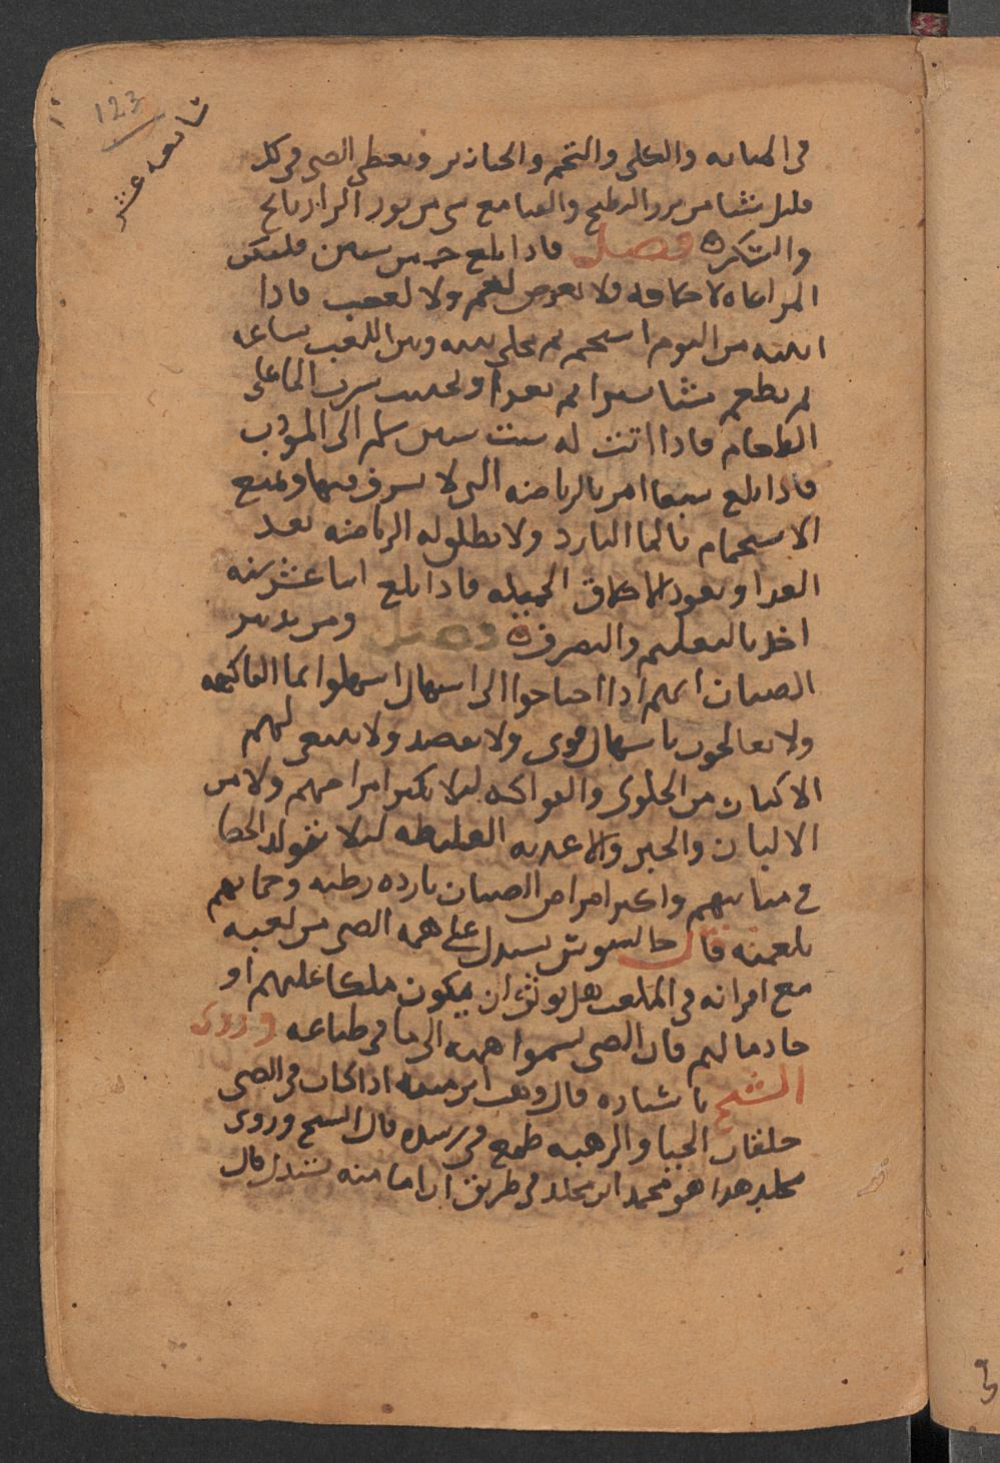 123
ثانيه عشر
في المثانه والكلى والتخم والخنازير ويعطى الصبي في كل
قليل شيا من بزر البطيخ والقثا مع شي من بزر الرازيانج
والسكر فصل فاذا بلغ خمس سنين فليكن
المراعاه لاخلاقه ولا يعرض لغم ولا لغضب فاذا
انتبه من النوم استحم ثم يخلى بينه وبين اللعب ساعه
ثم يطعم شيا يسيرا ثم يعود ويجنب شرب الما على
الطعام فاذا اتت له ست سنين سلم الى المودب
فاذا بلغ سبعا امر بالرياضه التي لا يسرف فيها ويمنع
الاستحمام بالما البارد ولا يطلق له الرياضه بعد
الغدا ويعود الاخلاق الجميله فاذا بلغ اثنا عشر سنه
اخذ بالتعليم والتصرف فصل ومن تدبير
الصبيان انهم اذا احتاجوا الى اسهال اسهلوا بما الفاكهه
ولا يعالجون باسهال قوى ولا بفصد ولا ينبغى لهم
الاكثار من الحلوى والفواكه ليلا يكثر امراضهم ولا من
الالبان والجبن والاغذيه الغليظه ليلا يتولد الحصا
في مثاناتهم واكثر امراض الصبيان بارده رطبه وحماياتهم
بلغميه قال جالينوس يستدل على همه الصبي من لعبه
مع اقرانه في الملعب هل يوثر ان يكون ملكا عليهم او
خادما لهم فان الصبي يسموا همته الى ما في طباعه وروى
الشيخ باسناده قال وهب ابن منبه اذا كان في الصبي
خلقان الحيا والرهبه طمع في رشده قال الشيخ وروى
مخلد هذا هو محمد ابن مخلد في طريق اذا ما منه يستدل قال